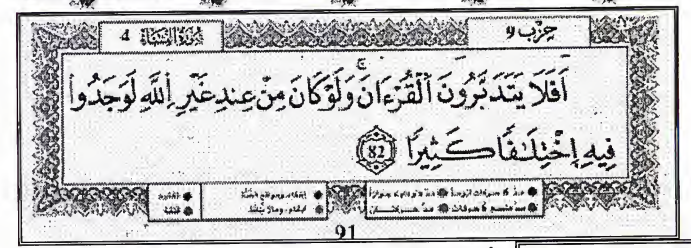 سُورَةُ النِّسَاءِ 4
حِزْب 9
أَفَلَا يَتَدَبَّرُونَ اَلْقُرْءَانَ وَلَوْ كَانَ مِنْ عِندِ غَيْرِ اِللَّهِ لَوَجَدُواْ
فِيهِ اِخْتِلَٰفاً كَثِيراً 82
91